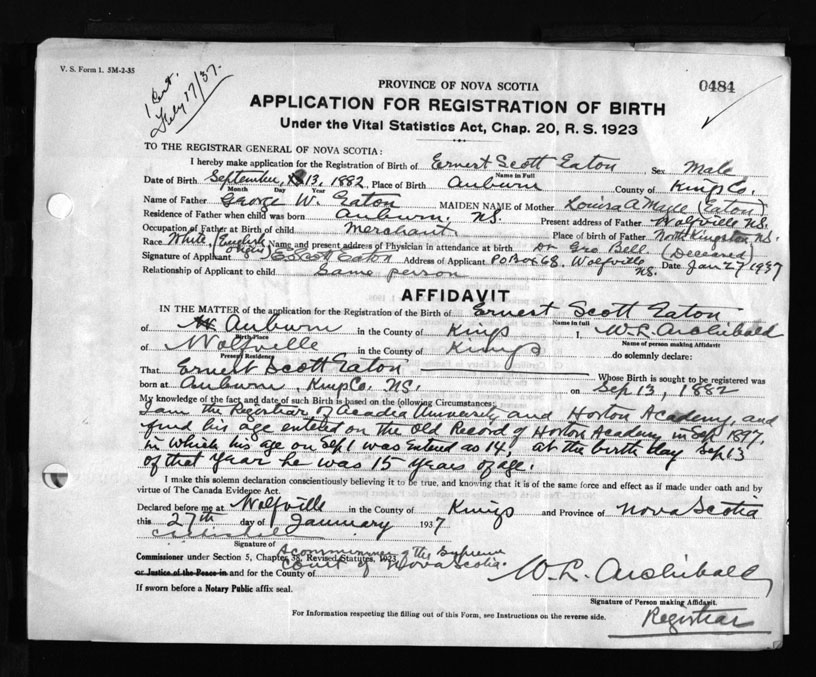 V. S. Form 1. 5M-2-35
1 Cert.
Feby 17/37.
PROVINCE OF NOVA SCOTIA
0484
APPLICATION FOR REGISTRATION OF BIRTH
Under the Vital Statistics Act, Chap. 20, R. S. 1923
TO THE REGISTRAR GENERAL OF NOVA SCOTIA:
I hereby make application for the Registration of Birth of Ernest Scott Eaton Sex Male
Name in Full
Date of Birth September, 13, 1882, Place of Birth Auburn County of Kings Co.
Month Day Year
Name of Father George W. Eaton MAIDEN NAME of Mother Louisa A (Eaton)
Residence of Father when child was born Auburn, NS. Present address of Father Wolfville NS.
Occupation of Father at Birth of child Merchant Place of birth of Father North Kingston, NS.
Race White, (English origin) Name and present address of Physician in attendance at birth Dr Geo Bell. (Deceased)
Signature of Applicant E Scott Eaton Address of Applicant PO Box 68, Wolfville NS. Date Jan 27 1937
Relationship of Applicant to child Same person
AFFIDAVIT
IN THE MATTER of the application for the Registration of the Birth of Ernest Scott Eaton
Name in full
of Auburn in the County of Kings I, W.L. Archibald
Birth Place Name of person making Affidavit
of Wolfville in the County of Kings do solemnly declare:
Present Residence
That Ernest Scott Eaton Whose Birth is sought to be registered was
born at Auburn, Kings Co. NS. on Sep 13, 1882
My knowledge of the fact and date of such Birth is based on the following Circumstances:
I am the Registrar of Acadia University and Horton Academy, and
find his age entered on the old Record of Horton Academy in Sep 1897,
in which his age on Sep 1 was entered as 14, at the birth day Sep 13
of that year he was 15 years of age.
I make this solemn declaration conscientiously believing it to be true, and knowing that it is of the same force and effect as if made under oath and by
virtue of The Canada Evidence Act.
Declared before me at Wolfville in the County of Kings and Province of Nova Scotia
this 27th day of January 1937
Signature of
Commissioner under Section 5, Chapter 38, Revised Statutes, 1923 A commissioner of the Supreme
or Justice of the Peace in and for the County of Court of Nova Scotia.
If sworn before a Notary Public affix seal.
W. L. Archibald
Signature of Person making Affidavit.
Registrar
For Information respecting the filling out of this Form, see Instructions on the reverse side.